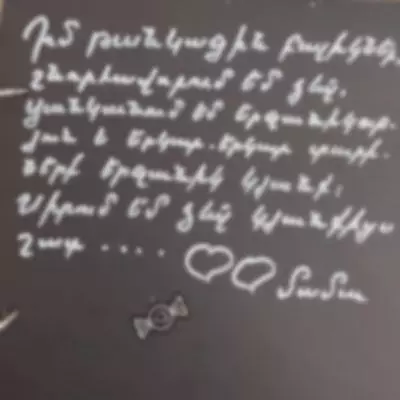 Իմ թանկագին բալիկներ,
Շնորհավորում եմ ձեզ.
Ցանկանում եմ երջանկութ-
յուն և երկար-երկար տարի-
ներ երջանիկ կյանք:
Սիրում եմ ձեզ կյանքիցս
շատ .... ♡♡ մամա